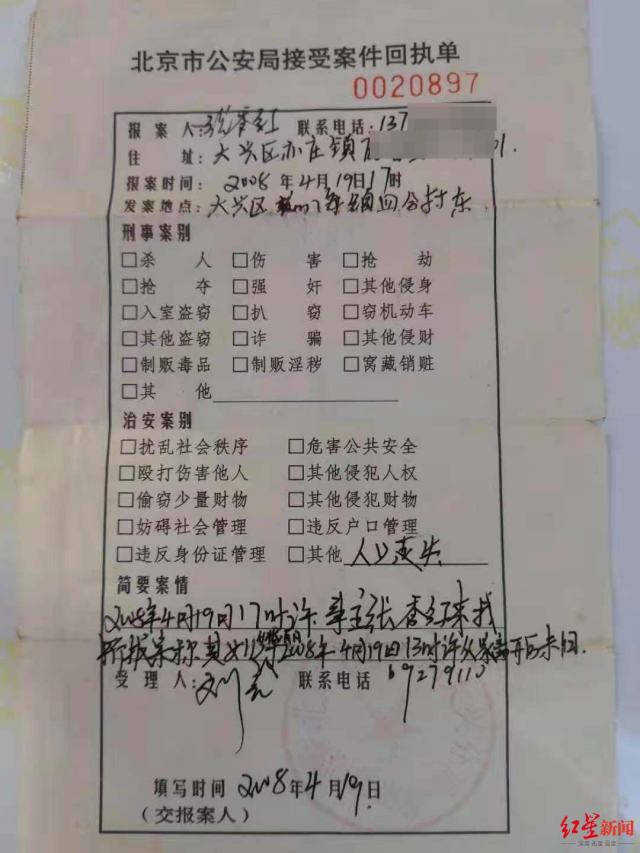 北京市公安局接受案件回执单
0020897
报案人:张香红 联系电话:137
住址:大兴区亦庄镇
报案时间:2008年4月19日17时
发案地点:大兴区
刑事案别
□杀人 □伤害 □抢劫
□抢夺 □强奸 □其他侵身
□入室盗窃 □扒窃 □窃机动车
□其他盗窃 □诈骗 □其他侵财
□制贩毒品 □制贩淫秽 □窝藏销赃
□其他
治安案别
□扰乱社会秩序 □危害公共安全
□殴打伤害他人 □其他侵犯人权
□偷窃少量财物 □其他侵犯财物
□妨碍社会管理 □违反户口管理
□违反身份证管理 □其他 人口走失
简要案情
2008年4月19日17时许 事主张香红来我
所报案称其女儿 2008年4月19日13时许从家离开后未归.
受理人: 联系电话 69279110
填写时间 2008年4月19日
(交报案人)
红星新闻
深度 态度 温度